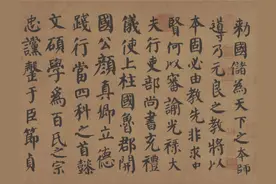 勅國儲為天下之本師
導乃元良之教將以
本固必由教先非求中
賢何以審諭光祿大
夫行吏部尚書充禮
儀使上柱國魯郡開
國公顏真卿立德
踐行當四科之首懿
文碩學為百氏之宗
忠讜罄于臣節貞